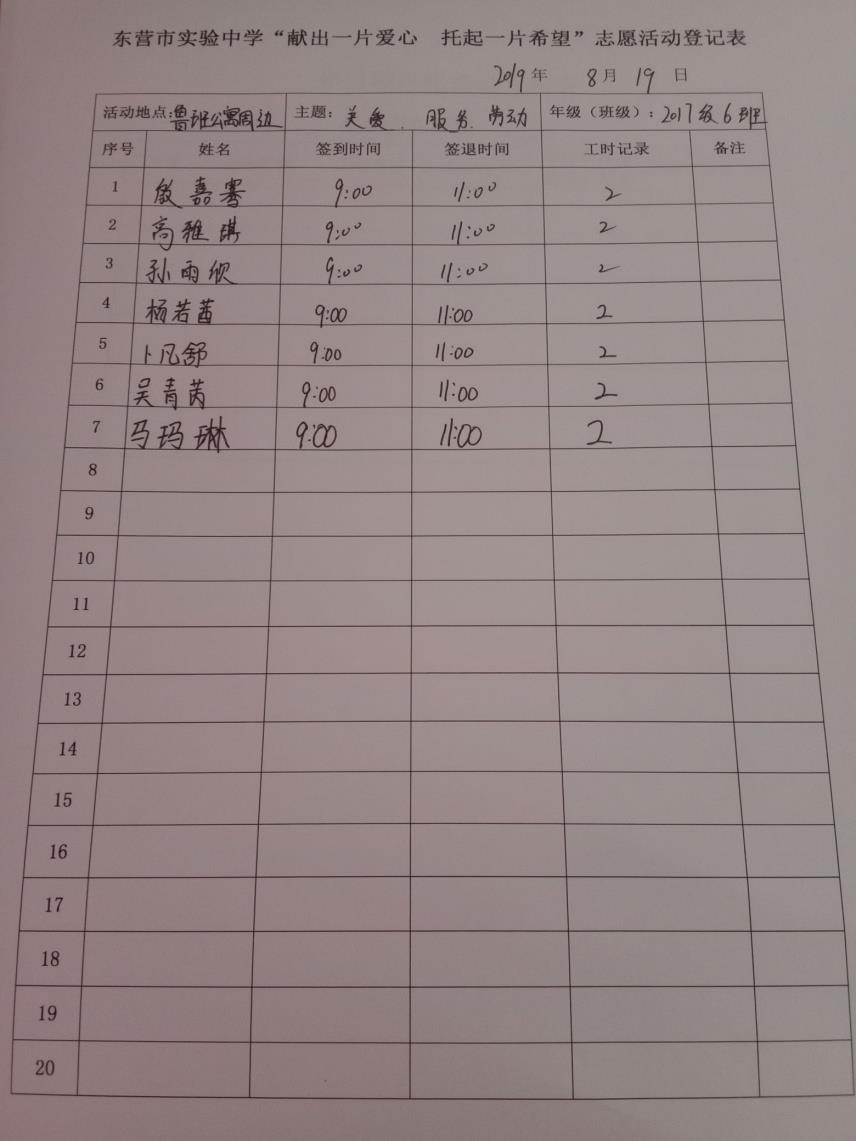 东营市实验中学“献出一片爱心 托起一片希望”志愿活动登记表
2019年 8月 19日
活动地点:鲁班公寓周边 主题: 关爱、服务、劳动 年级（班级）: 2017级6班
序号 姓名 签到时间 签退时间 工时记录 备注
1 嘉骞 9:00 11:00 2
2 高雅琪 9:00 11:00 2
3 孙雨欣 9:00 11:00 2
4 杨若茜 9:00 11:00 2
5 卜凡舒 9:00 11:00 2
6 吴青芮 9:00 11:00 2
7 马玛琳 9:00 11:00 2
8
9
10
11
12
13
14
15
16
17
18
19
20